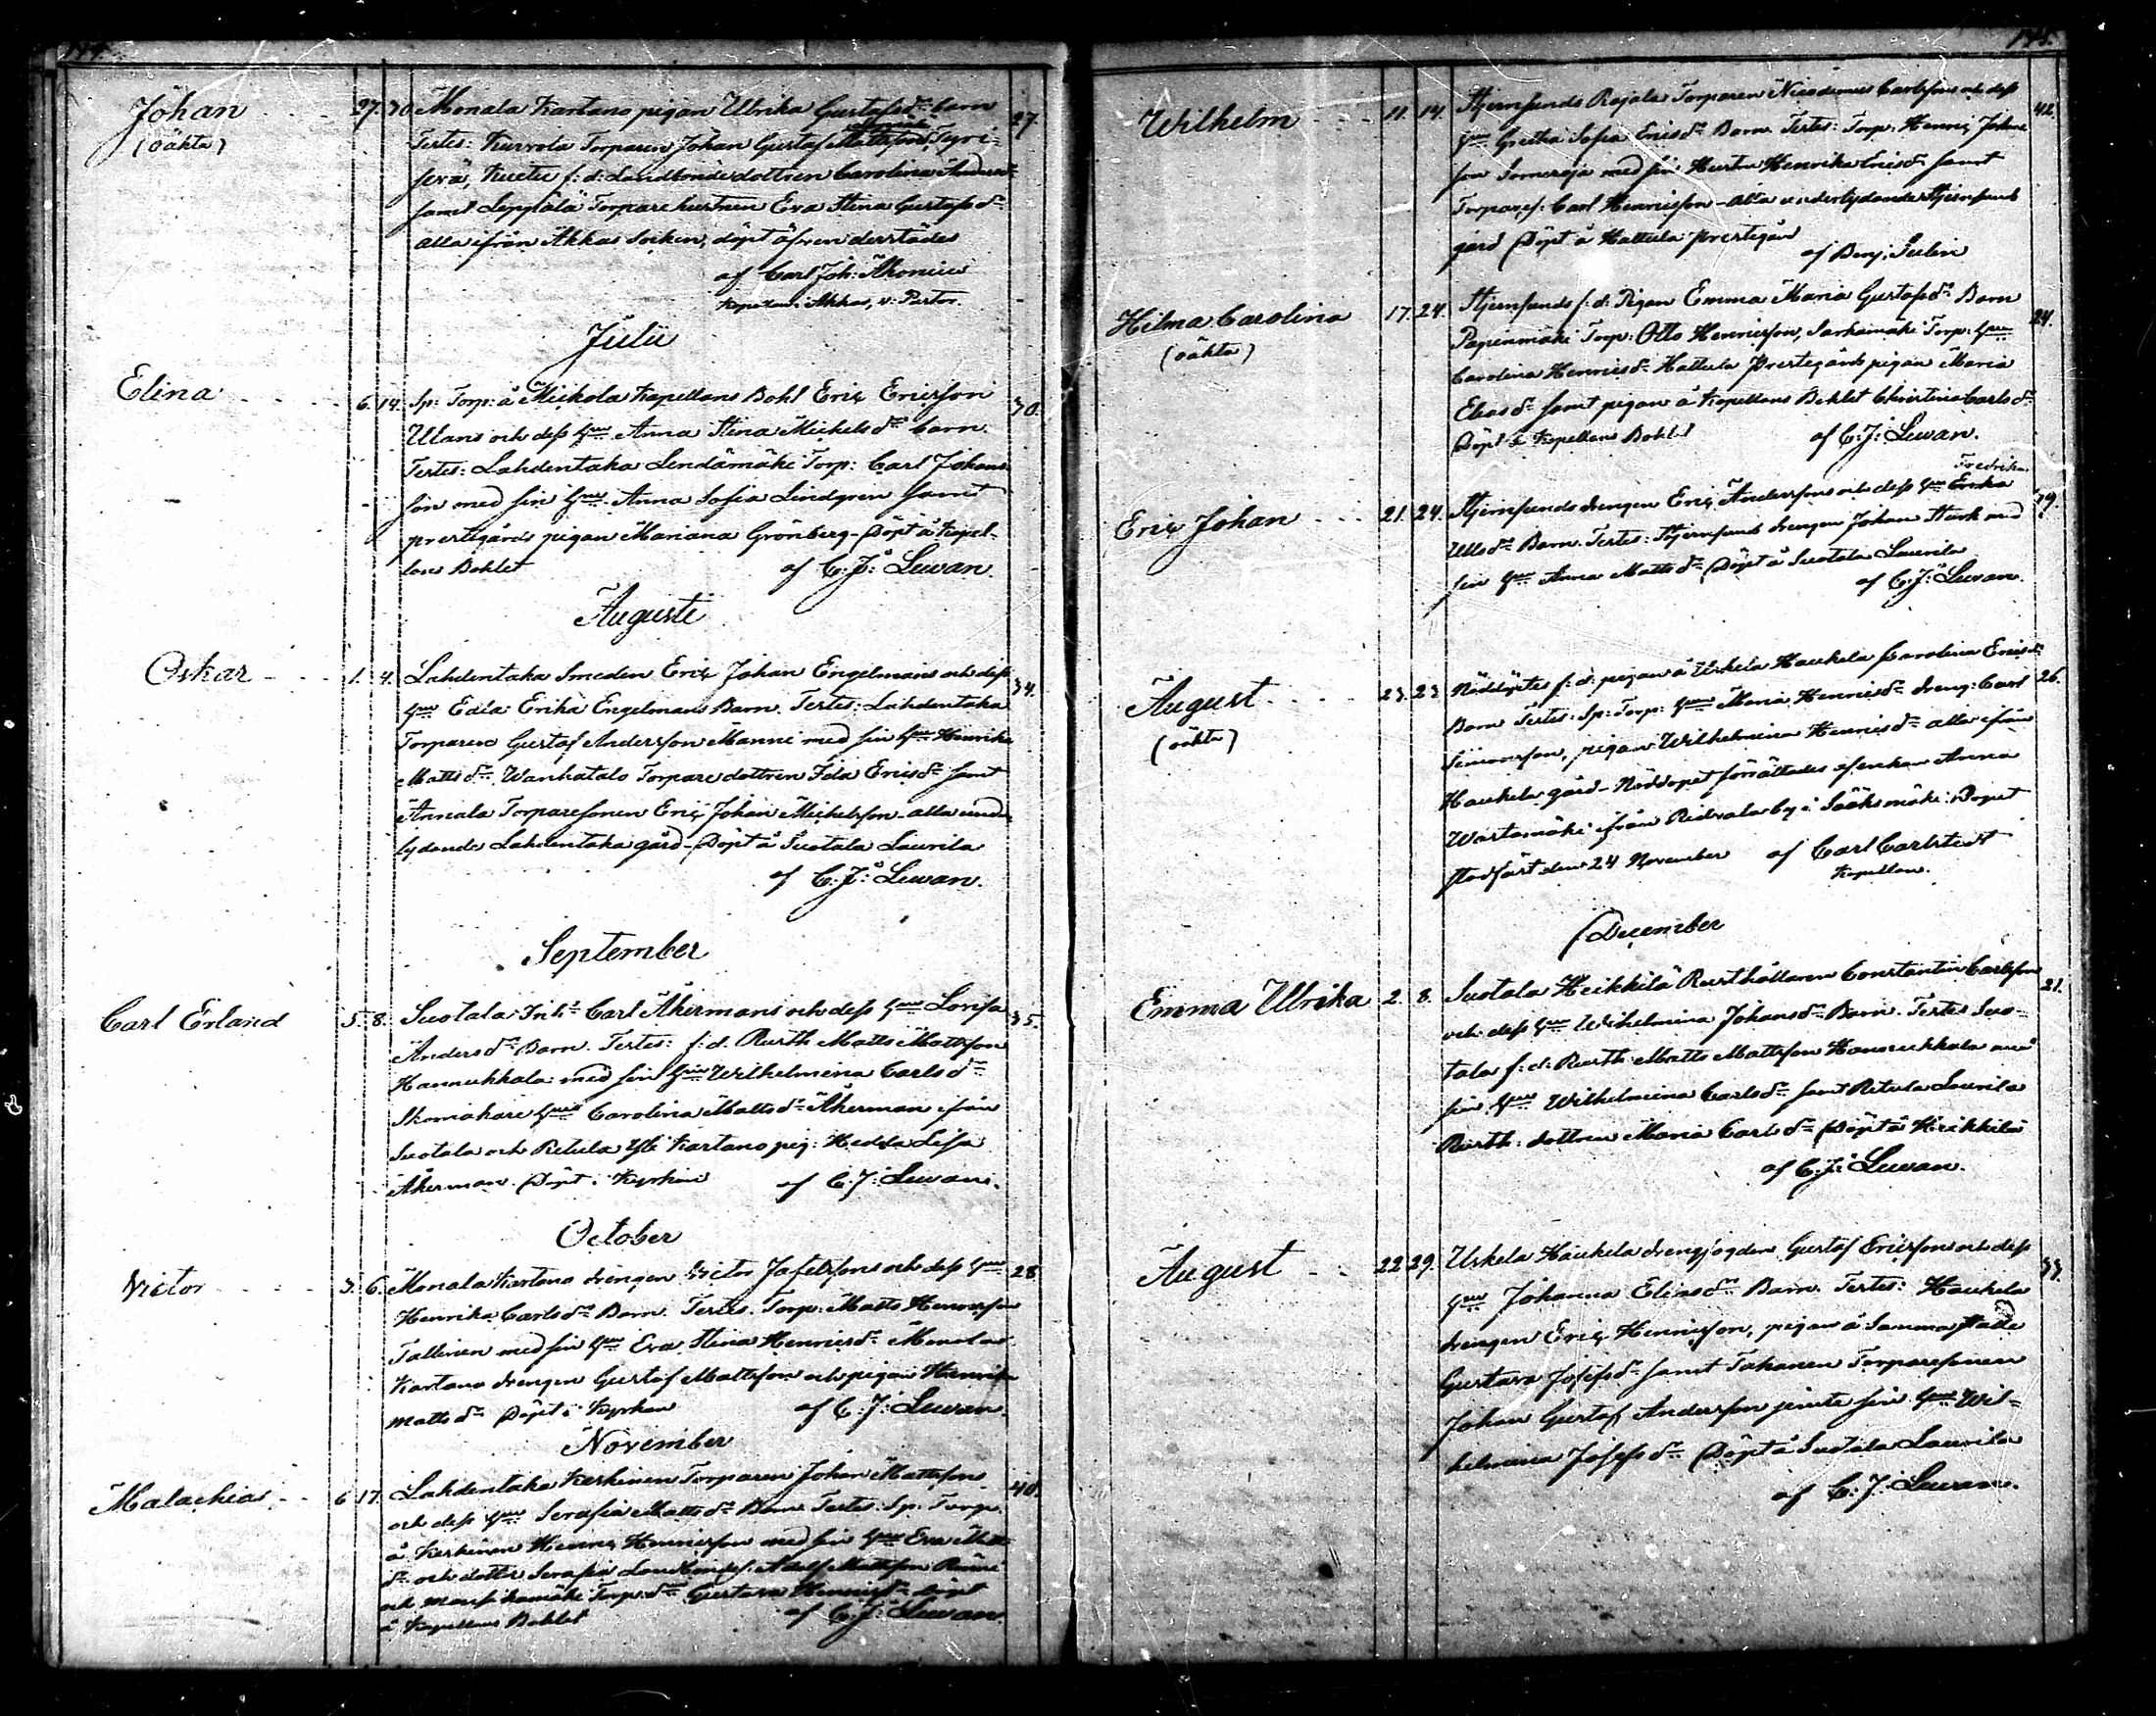 Johan 27. 30. Monala Kartano pigan Ulrika Gustafsdr barn 27.
(oäkta) Testes: Kurvola Torparen Johan Gustaf Mattsson,
Kuetu f: d: Landbondedottren Carolina Andersdr
samt Leppälä Torparehustrun Eva Stina Gustafsdr
alla ifrån Akkas Socken, döpt äfven derstädes
af Carl Joh: Åkonius
Kapellan i Akkas, v: Pastor.
Julii
Elina 6. 14. Sp: Torp: å Mickola Kapellans Bohl Eriç Ericsson 30.
Ulans och dess Hu Anna Stina Mickelsdr barn.
Testes: Lahdentaka Lendämäki Torp: Carl Johans-
son med sin Hu Anna Sofia Lindgren samt
prestgårds pigan Mariana Grönberg - Döpt å Kapel-
lans Bohlet af C: J: Lewan.
Augusti
Oskar 1. 4. Lahdentaka Smeden Eriç Johan Engelmans och dess 34.
Hu Edla Erika Engelmans Barn. Testes: Lahdentaka
Torparen Gustaf Andersson Manni med sin Hu Henrika
Mattsdr Wanhatalo Torparedottren Ida Ericsdr samt
Annala Torparesonen Eriç Johan Mickelsson - alla under-
lydande Lahdentaka gård - Döpt å Suotala Laurila
af C: J: Lewan.
September
Carl Erland 5. 8. Suotala Inh: Carl Åkermans och dess Hu Lovisa 35.
Andersdr Barn. Testes: f: d. Rusth Matts Mattsson
Hannukkala med sin Hu Wilhelmina Carlsdr
Skomakare Hu Carolina Mattsdr Åkerman ifrån
Suotala och Retula Kartano pig: Hedda Lisa
Åkerman. Döpt i Kyrkan af C. J: Lewan.
October
Victor 3. 6. Monala Kartano drengen Victor Jafetssons och dess Hu 28
Henrika Carlsdr Barn. Testes. Torp: Matts Henricsson
Tallinen med sin Hu Eva Stina Henricsdr Monala
Kartano drengen Gustaf Mattsson och pigan Henrika
Mattsdr Döpt i Kyrkan af C: J: Lewan.
November
Malachias 6 17. Lahdentaka Keskinen Torparen Johan Mattsson 40.
och dess Hu Serafia Mattsdr Barn Testes: Sp: Torp.
å Keskinen Henriç Henricsson med sin Hu Eva Matts-
dr och dotter Serafia Adolf Mattsson
och Torp. dr Gustava Henricsdr döpt
å Kapellans Bohlet af C: J: Lewan.
Wilhelm 11. 14. Stjernsunds Rajala Torparen Nicodemus Carlssons och dess 42.
Hu Gretha Sofia Ericsdr Barn. Testes: Torp: Henriç Johans-
son Someroja med sin Hustru Henrika Ericsdr samt
Torpares: Carl Henricsson - alla underlydande Stjernsunds
gård Döpt å Hattula prestgård
af Benj: Sulin
Hilma Carolina 17. 24. Stjernsunds f: d: Pigan Emma Maria Gustafsdr Barn 24.
(oäkta) Papinmäki Torp: Otto Henricsson, Sarkamäki Torp: Hu
Carolina Henricsdr Hattula Prestgårds pigan Maria
Eliasdr samt pigan å Kapellans Bohlet Christina Carlsdr
Döpt å Kapellans Bohlet af C: J: Lewan.
Fredrika
Eriç Johan 21. 24. Stjernsunds drengen Eriç Anderssons och dess Hu Erika 29.
Ulsdr Barn. Testes: Stjernsunds drengen Johan Stark med
sin Hu Anna Mattsdr Döpt å Suotala Laurila
af C: J: Lewan.
August 23. 23 Nöddöptes f: d: pigan å Uskela Haukela Carolina Ericsdr 26.
(oäkta) Barn Testes: Sp: Torp: Hu Maria Henricsdr dreng: Carl
Simonsson, pigan Wilhelmina Henricsdr alla ifrån
Haukela gård - Nöddopet förrättades af enkan Anna
Wartamäki ifrån Ridvala by i Sääksmäki: Dopet
stadfäst den 24 November af Carl Carlstedt
Kapellan.
December
Emma Ulrika 2. 8. Suotala Heikkilä Rusthållaren Constantin Carlsson 21.
och dess Hu Wilhelmina Johansdr Barn. Testes Suo-
tala f: d: Rusth: Matts Mattsson Hannukkala med
sin Hu Wilhelmina Carlsdr samt Retula Laurila
Rusth: dottren Maria Carlsdr Döpt å Heikkilä
af C: J: Lewan.
August 22 29. Uskela Haukela drengfogden Gustaf Ericssons och dess 33.
Hu Johanna Eliasdr Barn. Testes: Haukela
drengen Eriç Henricsson, pigan å samma ställe
Gustava Josefsdr samt Tahanen Torparesonen
Johan Gustaf Andersson jemte sin Hu Wil-
helmina Josefsdr Döpt å Suotala Laurila
af C. J. Lewan.